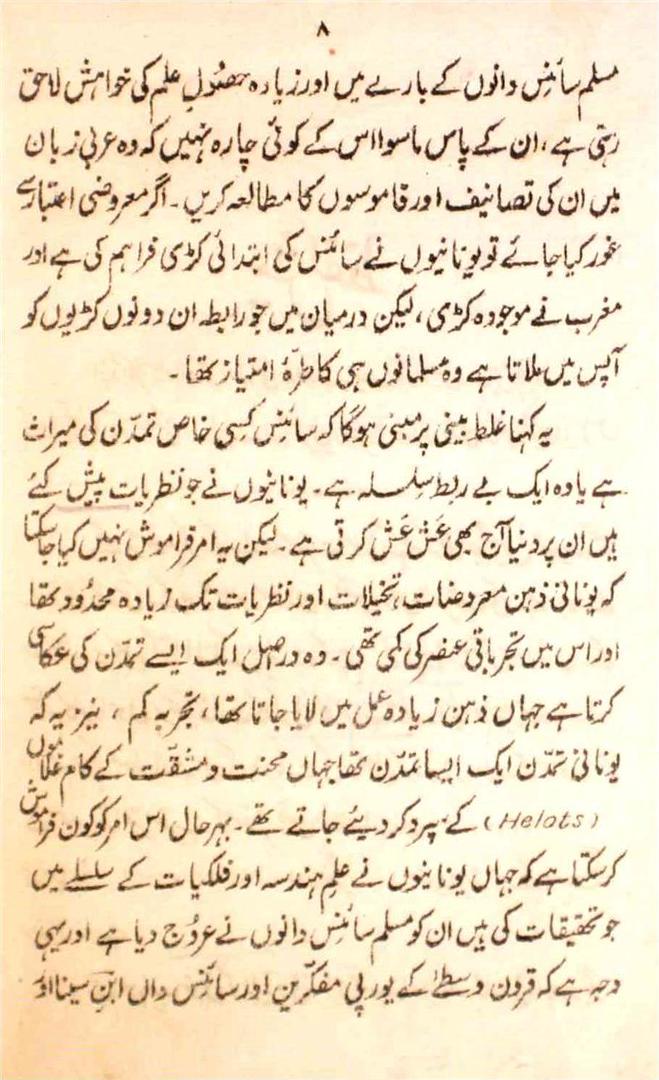 ۸
مسلم سائنس دانوں کے بارے میں اور زیادہ حصُولِ علم کی خواہش لاحق
رہتی ہے، ان کے پاس ماسوا اس کے کوئی چارہ نہیں کہ وہ عربی زبان
میں ان کی تصانیف اور قاموسوں کا مطالعہ کریں۔ اگر معروضی اعتبار سے
غور کیا جائے تو یونانیوں نے سائنس کی ابتدائی کڑی فراہم کی ہے اور
مغرب نے موجودہ کڑی، لیکن درمیان میں جو رابطہ ان دونوں کڑیوں کو
آپس میں ملاتا ہے وہ مسلمانوں ہی کا طرۂ امتیاز تھا۔
یہ کہنا غلط بینی پر مبنی ہوگا کہ سائنس کسِی خاص تمدّن کی میراث
ہے یا وہ ایک بے ربط سِلسلہ ہے۔ یونانیوں نے جو نظریات پیش کئے
ہیں ان پر دنیا آج بھی عَش عَش کرتی ہے۔ لیکن یہ امر فراموش نہیں کیا جا سکتا
کہ یونانی ذہن معروضات، تخیلات اور نظریات تک زیادہ محدُود تھا
اور اس میں تجرباتی عنصر کی کمی تھی۔ وہ دراصل ایک ایسے تمدّن کی عکاسی
کرتا ہے جہاں ذہن زیادہ عمل میں لایا جاتا تھا، تجربہ کم، نیز یہ کہ
یونانی تمدّن ایک ایسا تمدّن تھا جہاں محنت و مشقّت کے کام غلاموں
(Helots) کے سپرد کر دیئے جاتے تھے۔ بہرحال اس امر کو کون فراموش
کر سکتا ہے کہ جہاں یونانیوں نے علمِ ہندسہ اور فلکیات کے سلسلے میں
جو تحقیقات کی ہیں ان کو مسلم سائنس دانوں نے عرُوج دیا ہے اور یہی
وجہ ہے کہ قرون وسطےٰ کے یورپی مفکّرین اور سائنس داں ابنِ سینا اور